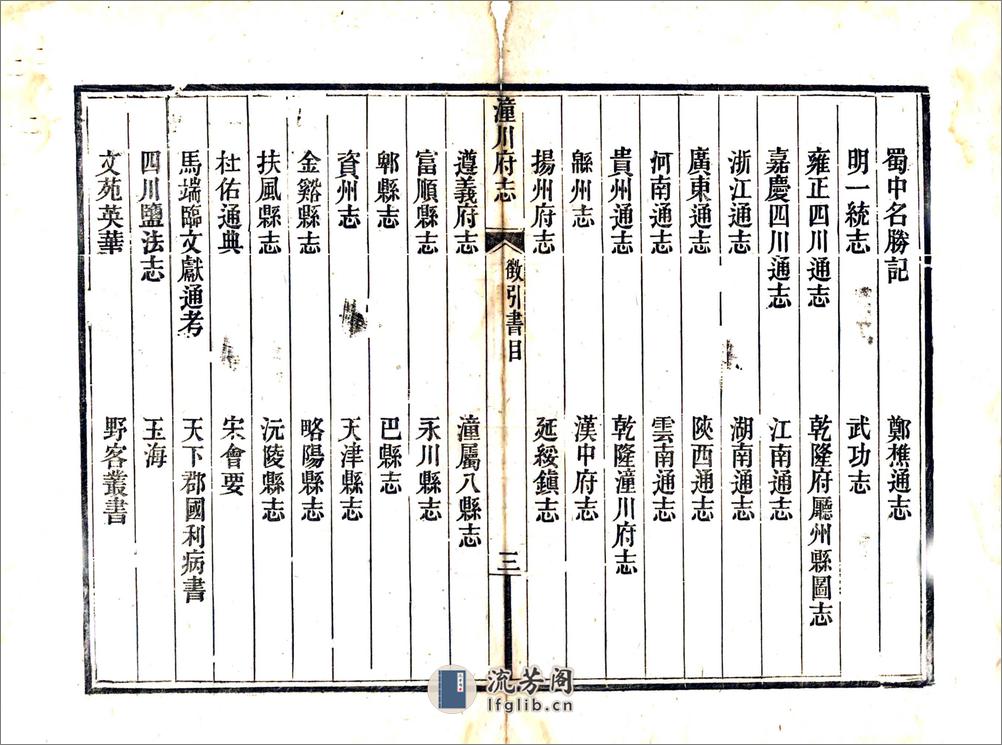 蜀中名勝記　鄭樵通志
明一統志　武功志
雍正四川通志　乾隆府廳州縣圖志
嘉慶四川通志　江南通志
浙江通志　湖南通志
廣東通志　陝西通志
河南通志　雲南通志
貴州通志　乾隆潼川府志
緜州志　漢中府志
揚州府志　延綏鎮志
潼川府志　徵引書目　三
遵義府志　潼屬八縣志
富順縣志　永川縣志
郫縣志　巴縣志
資州志　天津縣志
金谿縣志　略陽縣志
扶風縣志　沅陵縣志
杜佑通典　宋會要
馬端臨文獻通考　天下郡國利病書
四川鹽法志　玉海
文苑英華　野客叢書
流芳阁
lfglib.cn